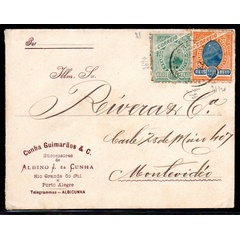 Illmo. Sr.
Rivera & Ca.
Calle 25 de Mayo 467
Montevidéo
Cunha Guimarães & C.
Successores
de
ALBINO J. DA CUNHA
Rio Grande do Sul
Porto Alegre
Telegrammas — ALBICUNHA